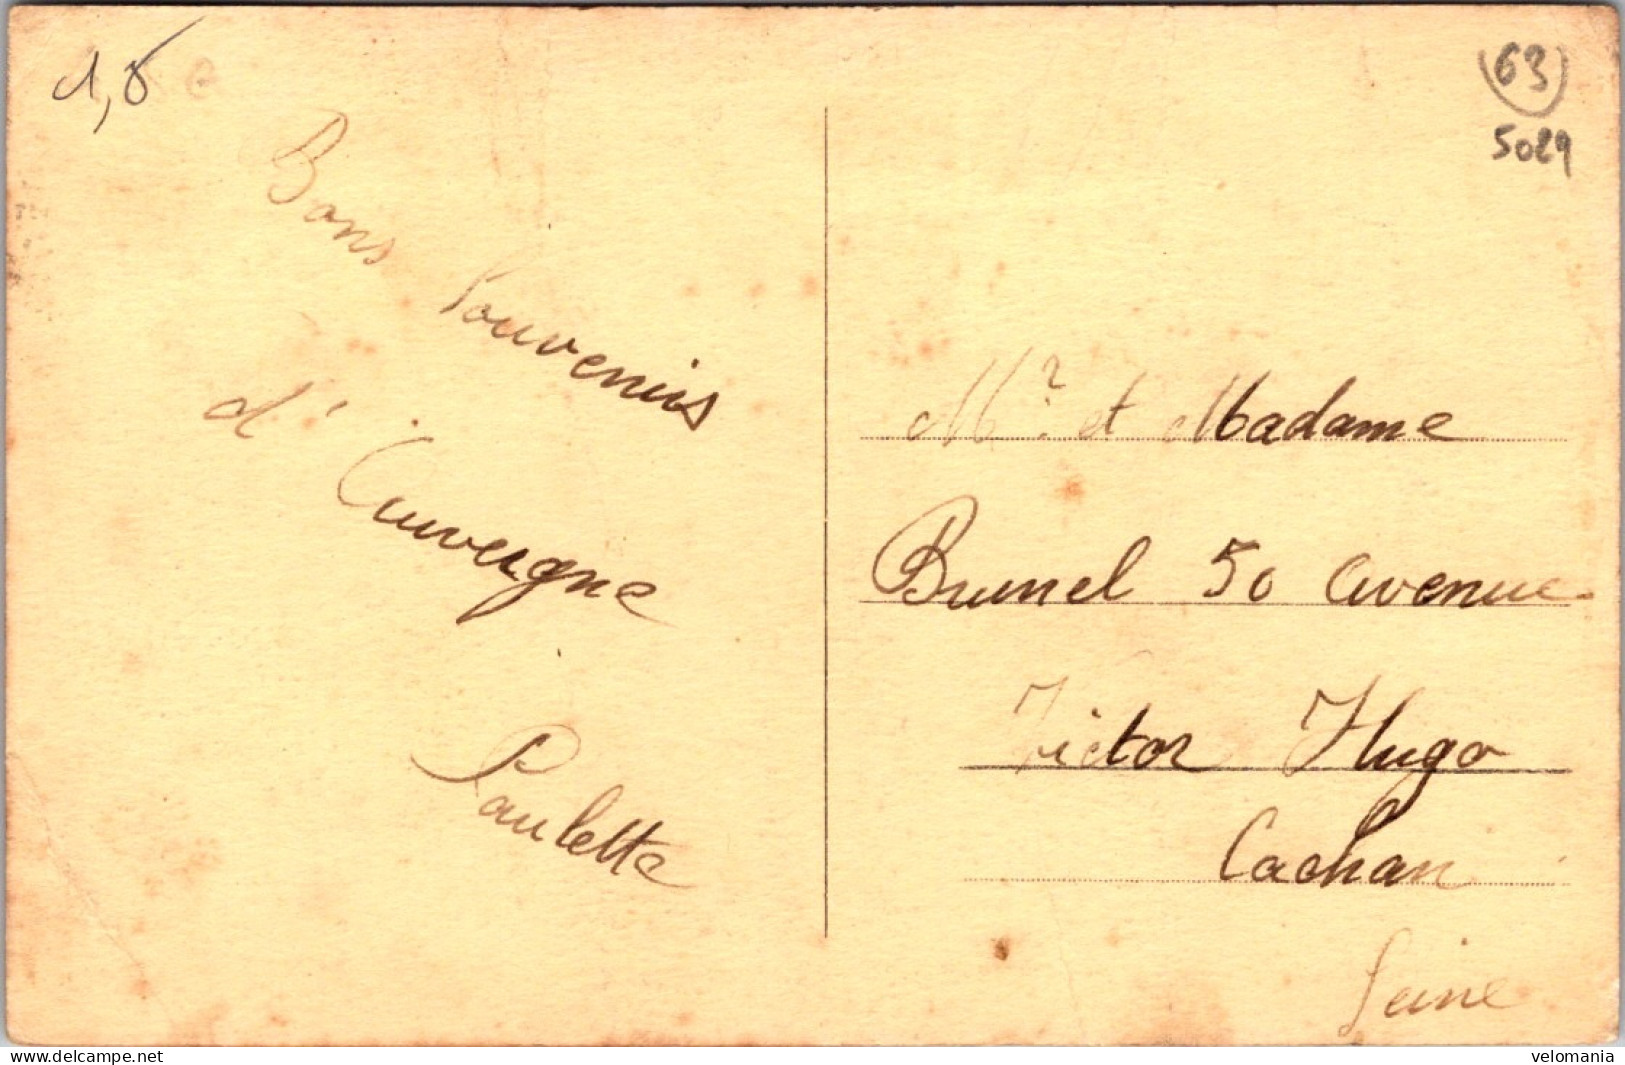 1,8
63
5029
Bons Souvenirs
d'Auvergne
Paulette
Mr. et Madame
Brunel 50 Avenue
Victor Hugo
Cachan
Seine
delcampe.net
velomania